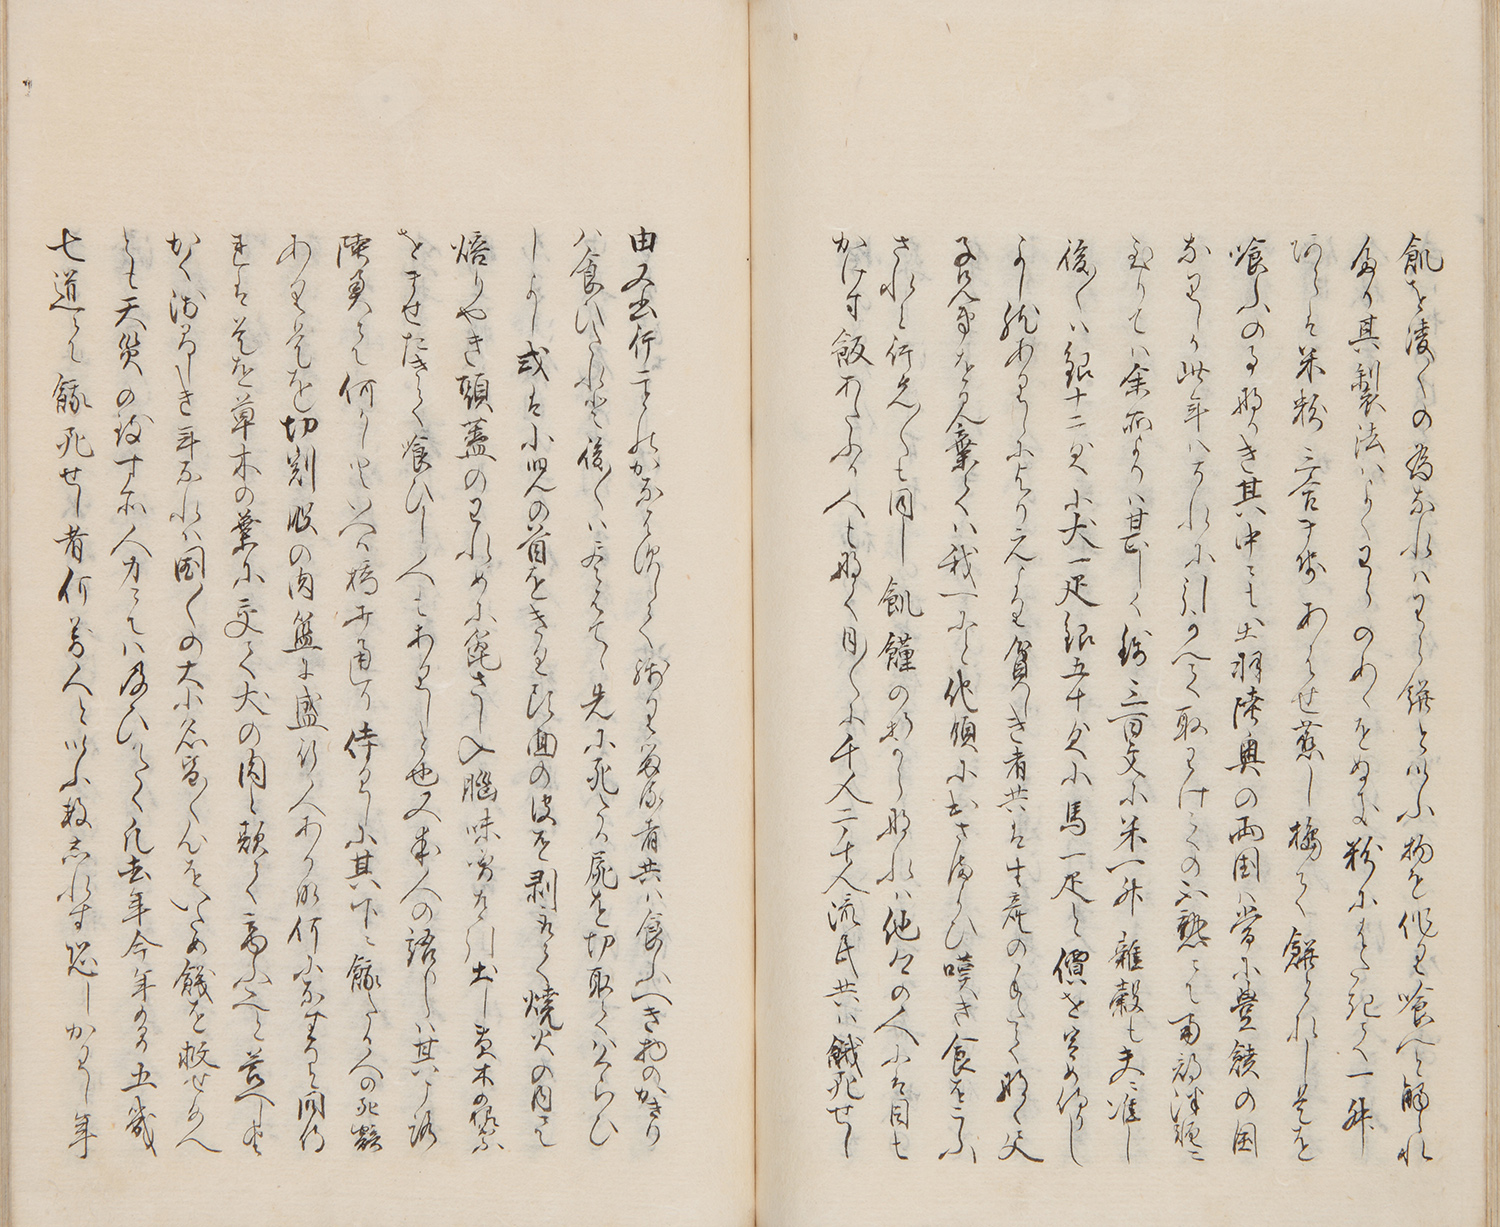 飢を凌くの為なれハわら餅といふ物を作り喰へと触られ
たり其製法ハよくわらのあくをぬき粉にはたき記して一升
あらは米粉三合計あはせ蒸し搗て餅となし是を
喰ふのみ也しき其中にも出羽陸奥の両国ハ常に豊饒の国
なりしか此年ハそれに引かへて取わけての不熟にて南部津軽に
至りてハ余所よりハ甚しく銭三百文に米一升雑穀も夫に准し
後々ハ銀十二匁に犬一疋銀五十匁に馬一疋と價を定め侍りし
よし然ありしにより元より貧しき者共は生産の手たてなく父
子兄弟を見棄てハ我一にと他領に出さまよひ嘆き食をこふ
されと行先々も同し飢饉の折からなれハ他郷の人には目も
かけす飯あたふる人もなく日々に千人二千人流民共ハ餓死せし
由又出行事のかなはすして残り留る者共ハ食ふへき物のかきり
ハ食ひたれと後々ハ尽はてゝ先に死たる屍を切取てハくらひ
しよし或は小児の首をきり頭面の皮を剥去りて焼火の内にて
焙りやき頭蓋のわれめに箆さし入脳味噌を引出し草木の根葉
をませたきて食ひし人もありしと也又或人の語りしハ其ころ
陸奥にて何かしとかいへる橋打通り侍りしに其下に餓たる人の死骸
あり是を切割股の肉籃に盛行人ある故何になすそと問侍
れは是を草木の葉に交て犬の肉と欺て商ふへしと答へしよし
かく浅ましき年なれハ国々の大小名皆々心をいため餓を救せ給へ
とも天災の致す所人力にてハ及ひかたく凡去年今年の間五畿
七道にて餓死せし者何万人といふ数しれす恐しかりし年